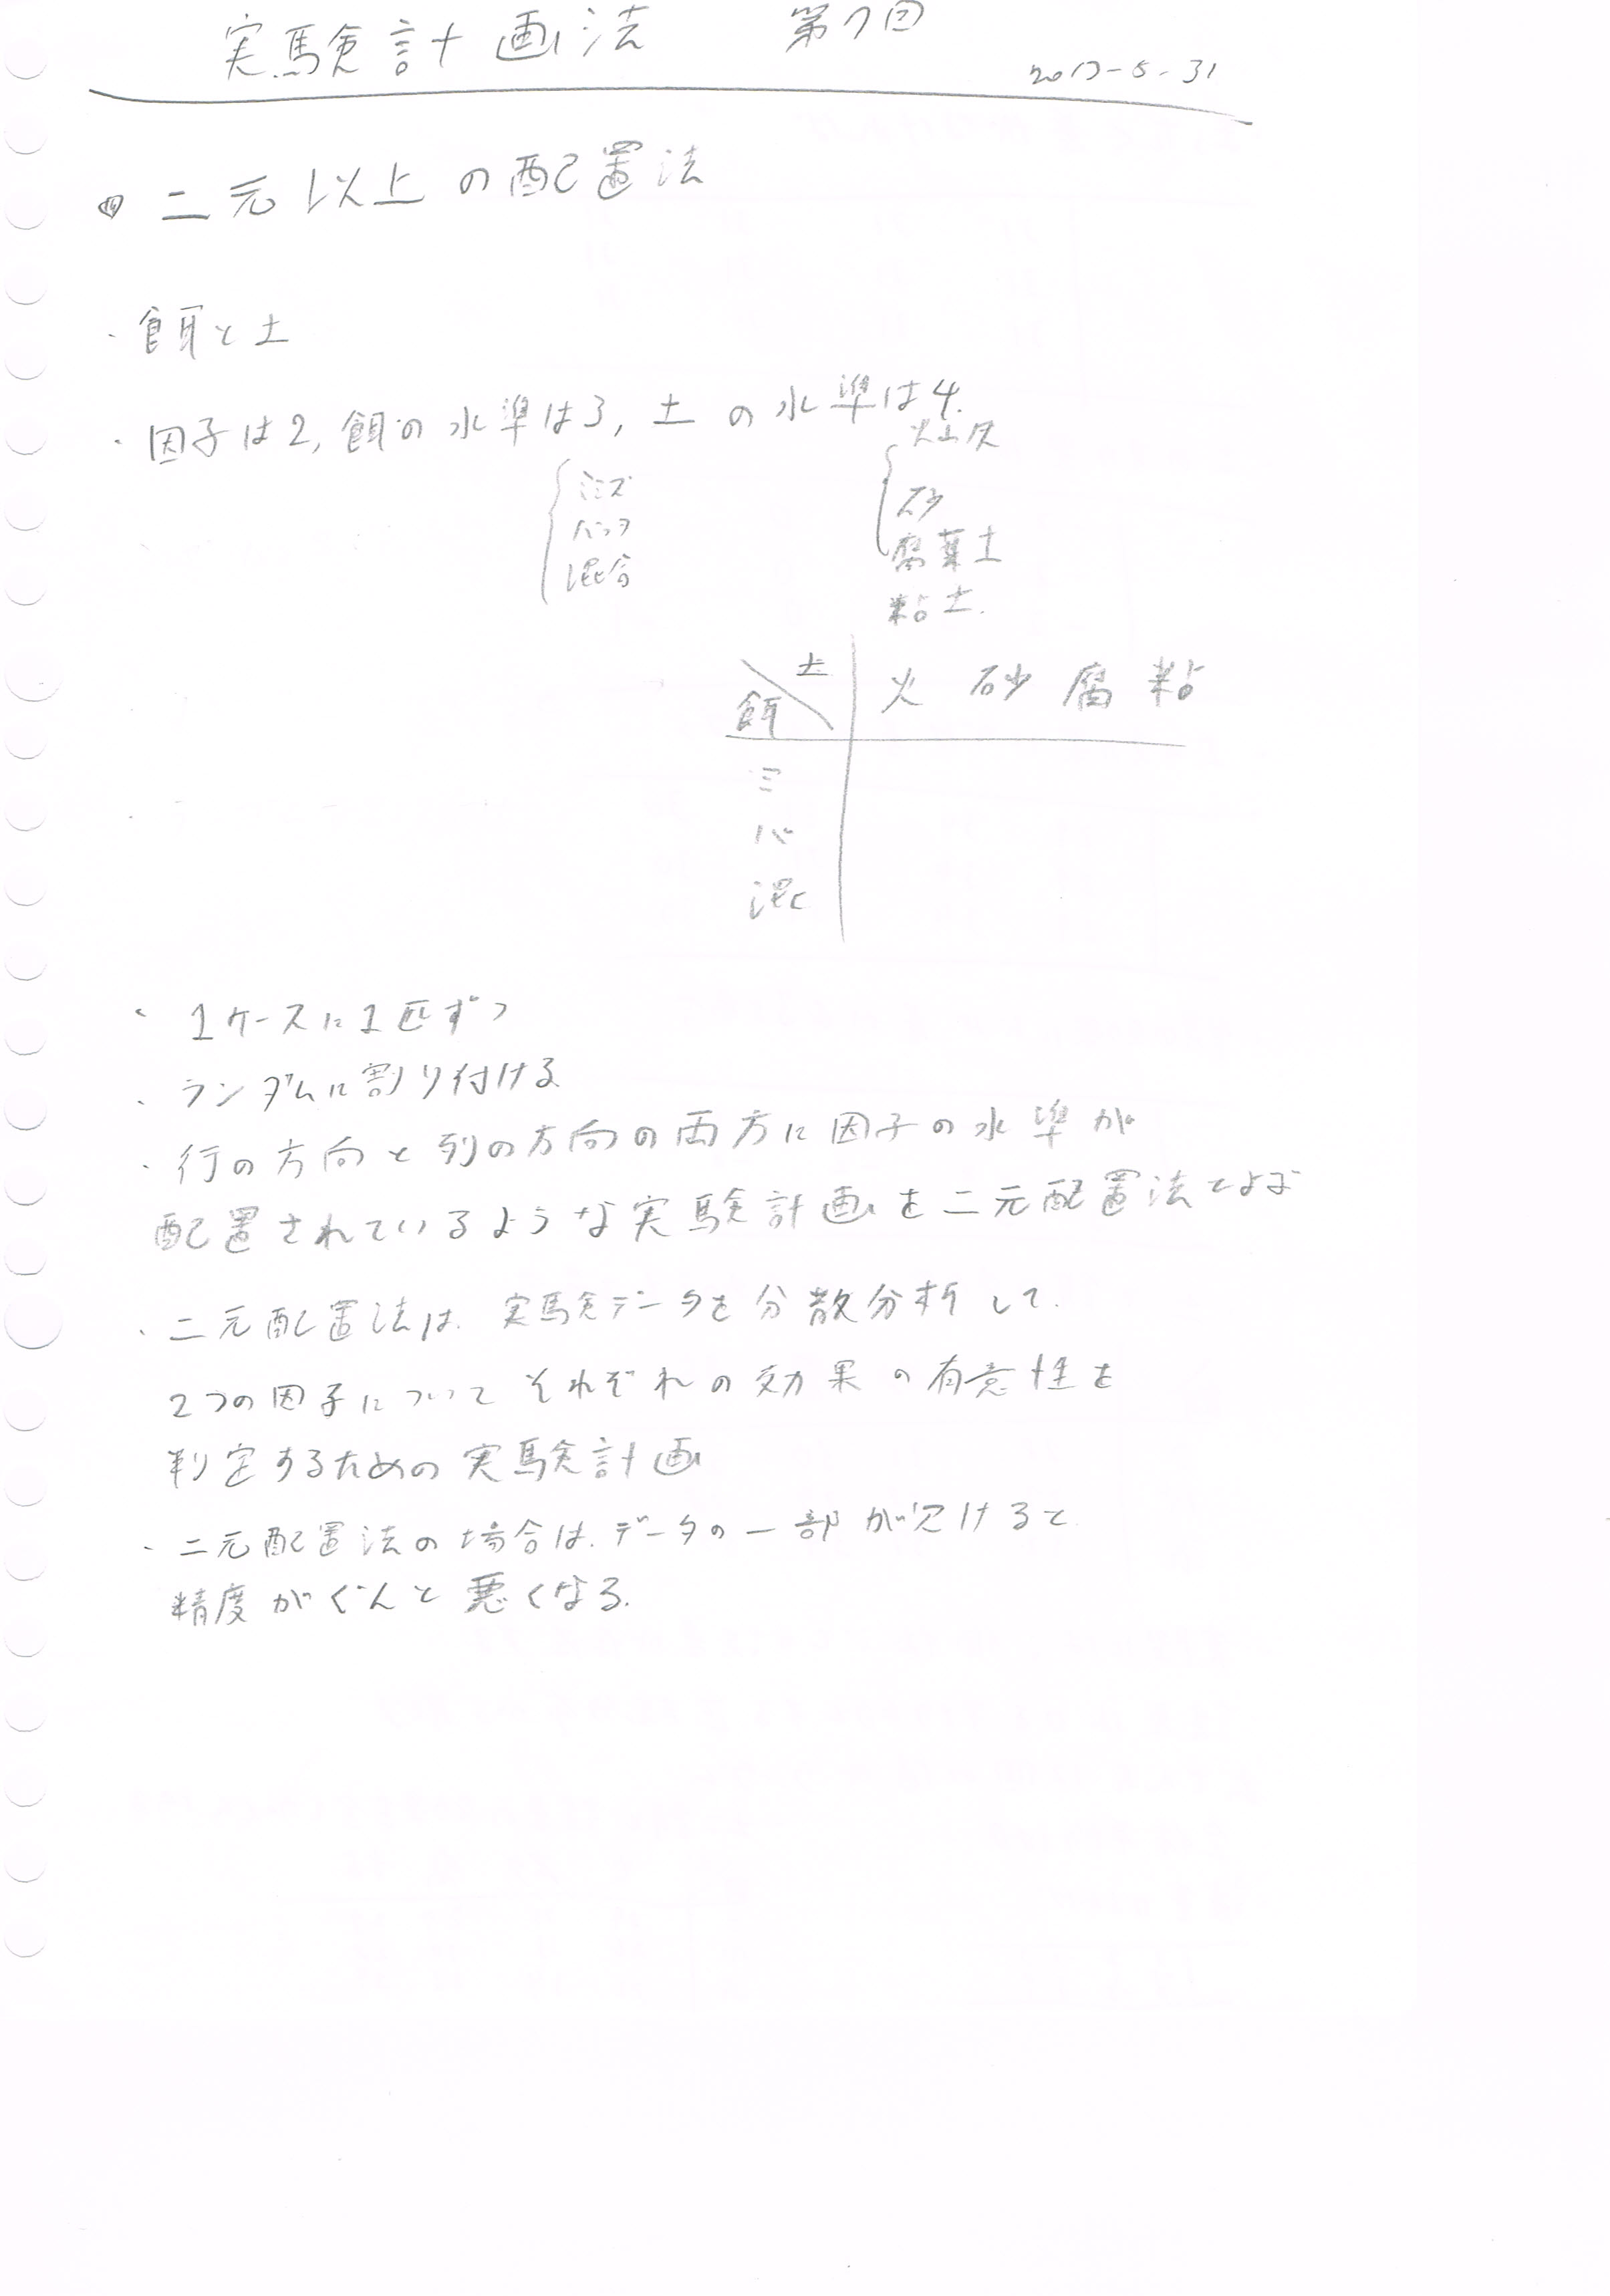 実験計画法 第7回
2017-5-31
二元以上の配置法
・餌と土
・因子は2, 餌の水準は3, 土の水準は4.
ミミズ
バッタ
混合
火山灰
砂
腐葉土
粘土.
土
餌
火 砂 腐 粘
ミ
バ
混
・1ケースに1匹ずつ
・ランダムに割り付ける
・行の方向と列の方向の両方に因子の水準が
配置されているような実験計画を二元配置法とよぶ
・二元配置法は、実験データを分散分析して、
2つの因子についてそれぞれの効果の有意性を
判定するための実験計画
・二元配置法の場合は、データの一部が欠けると
精度がぐんと悪くなる.